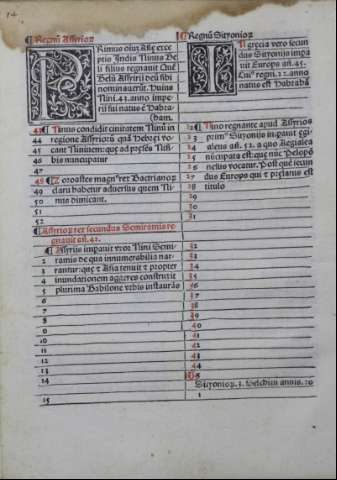 14
Regnũ Assirioꝝ
Primus oĩuz Asie exce
ptis Indis Ninus Be
li filius regnauit Quẽ
Belũ Assirij deũ sibi
nominauerũt. Huius
Nini .43. anno impe
rij sui natus ẽ Habra
ham.
43 ¶ Ninus condidit ciuitatem Ninũ in
44 regione Assirioꝝ quã Hebrei vo
45 cant Niniuem: que ad presẽs Nisi
46 bis nuncupatur
47
48 ¶ Zoroastes magus rex Bactrianoꝝ
49 clarus habetur aduersus quem Ni
50 nus dimicaui
51
52
Assirioꝝ rex secundus Semiramis re
gnauit añ. 42.
1 ¶ Assirijs imperauit vxor Nini Semi
2 ramis de qua innumerabilia nar
3 rantur: que & Asia tenuit & propter
4 inundationem aggeres construxit
5 plurima Babilone vrbis instaurãs
6
7
8
9
10
11
12
13
14
15
Regnũ Sitionioꝝ
In grecia vero secun
dus Sitionijs impa
uit Europs añ. 45.
Cuius regni .22. anno
natus est Habrahã
22 ¶ Nino regnante apud Assirios
23 primus Sitionijs impauit Egi
24 aleus añ. 52. a quo Aegialea
25 nũcupata est: que nũc Pelopõ
26 nesus vocatur. Post quẽ secun
27 dus Europs qui & prelatus est
28 titulo
29
30
31
32
33
34
35
36
37
38
39
40
41
42
43
44
45
Sitionioꝝ .3. Telchin annis. 20
1